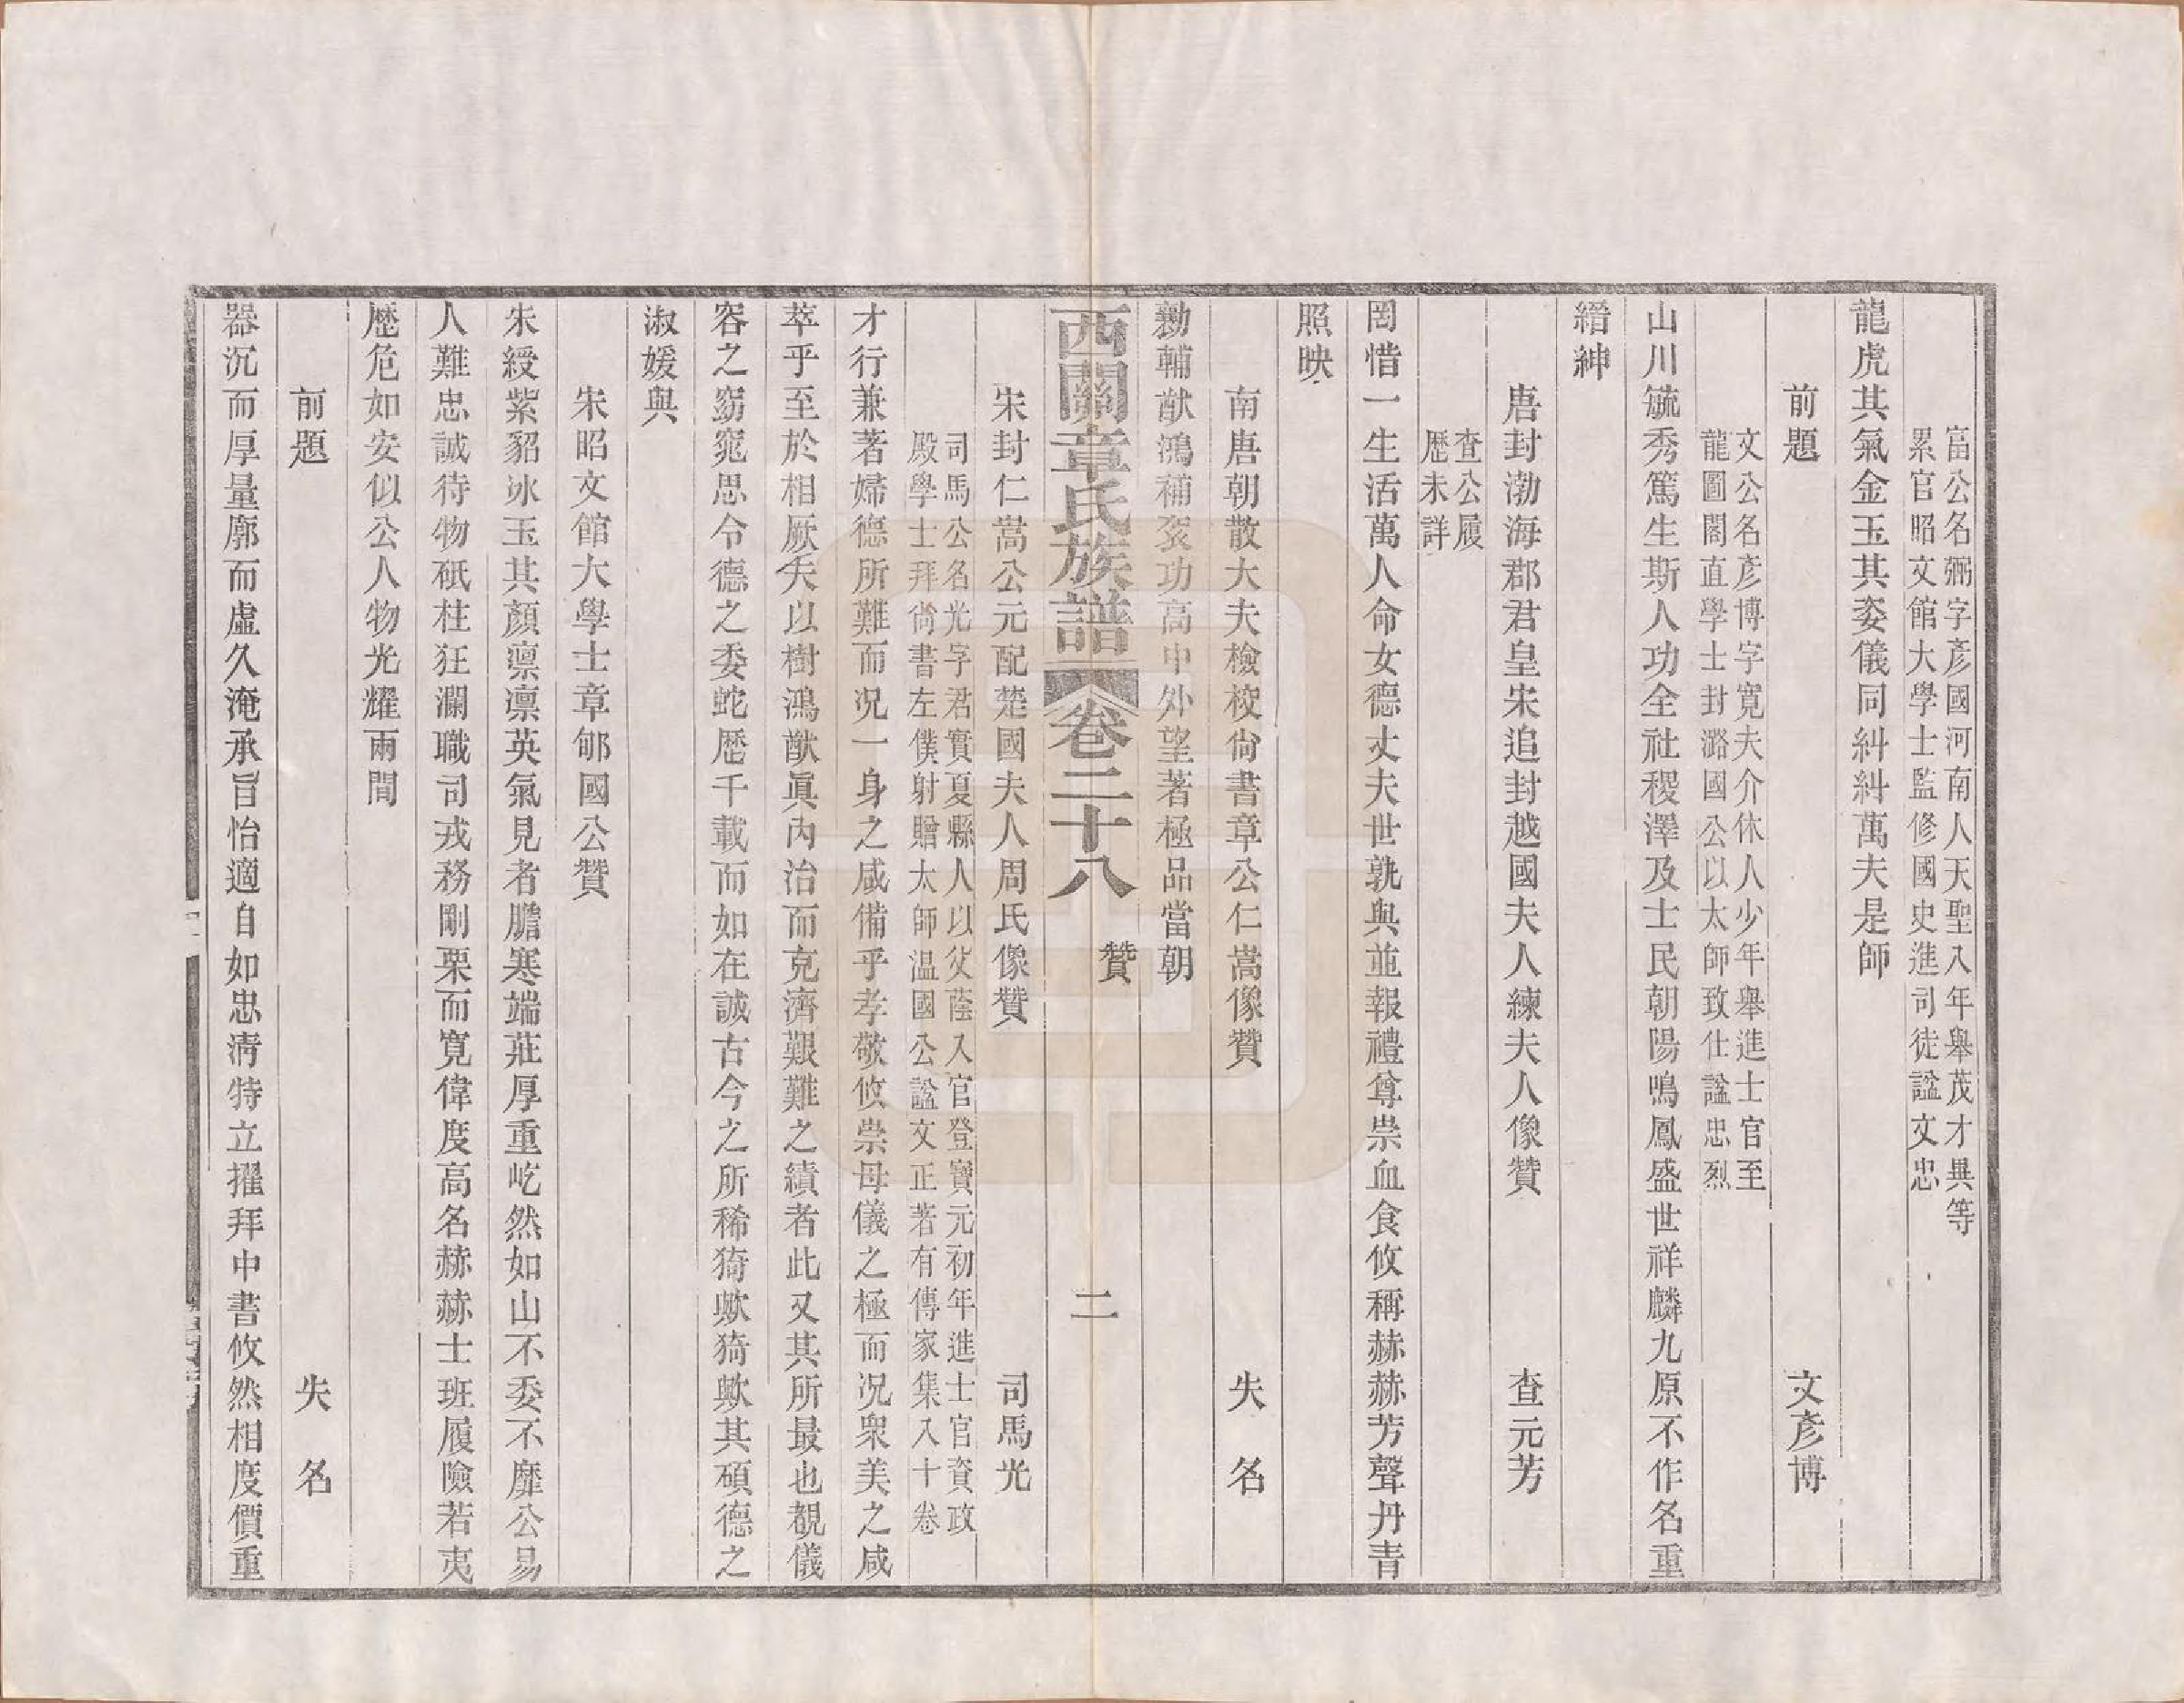 富公名弼字彥國河南人天聖八年舉茂才異等
累官昭文館大學士監修國史進司徒諡文忠
龍虎其氣金玉其姿儀同糾糾萬夫是師
前題 文彥博
文公名彥博字寬夫介休人少年舉進士官至
龍圖閣直學士封潞國公以太師致仕諡忠烈
山川毓秀篤生斯人功全社稷澤及士民朝陽鳴鳳盛世祥麟九原不作名重
縉紳
唐封渤海郡君皇宋追封越國夫人練夫人像贊 查元芳
查公履
歷未詳
罔惜一生活萬人命女德丈夫世孰與並報禮尊崇血食攸稱赫赫芳聲丹青
照映
南唐朝散大夫檢校尙書章公仁嵩像贊 失名
勷輔猷鴻補袞功高中外望著極品當朝
西關章氏族譜 卷二十八 贊 二
宋封仁嵩公元配楚國夫人周氏像贊 司馬光
司馬公名光字君實夏縣人以父蔭入官登寶元初年進士官資政
殿學士拜尙書左僕射贈太師溫國公諡文正著有傳家集八十卷
才行兼著婦德所難而況一身之咸備乎孝敬攸崇母儀之極而況衆美之咸
萃乎至於相厥夫以樹鴻猷眞內治而克濟艱難之績者此又其所最也覩儀
容之窈窕思令德之委蛇歷千載而如在誠古今之所稀猗歟猗歟其碩德之
淑媛與
宋昭文館大學士章郇國公贊
朱綬紫貂冰玉其顏凛凛英氣見者膽寒端莊厚重屹然如山不委不靡公易
人難忠誠待物砥柱狂瀾職司戎務剛栗而寬偉度高名赫赫士班履險若夷
歷危如安似公人物光耀兩間
前題 失名
器沉而厚量廓而虛久淹承旨怡適自如忠淸特立擢拜中書攸然相度價重